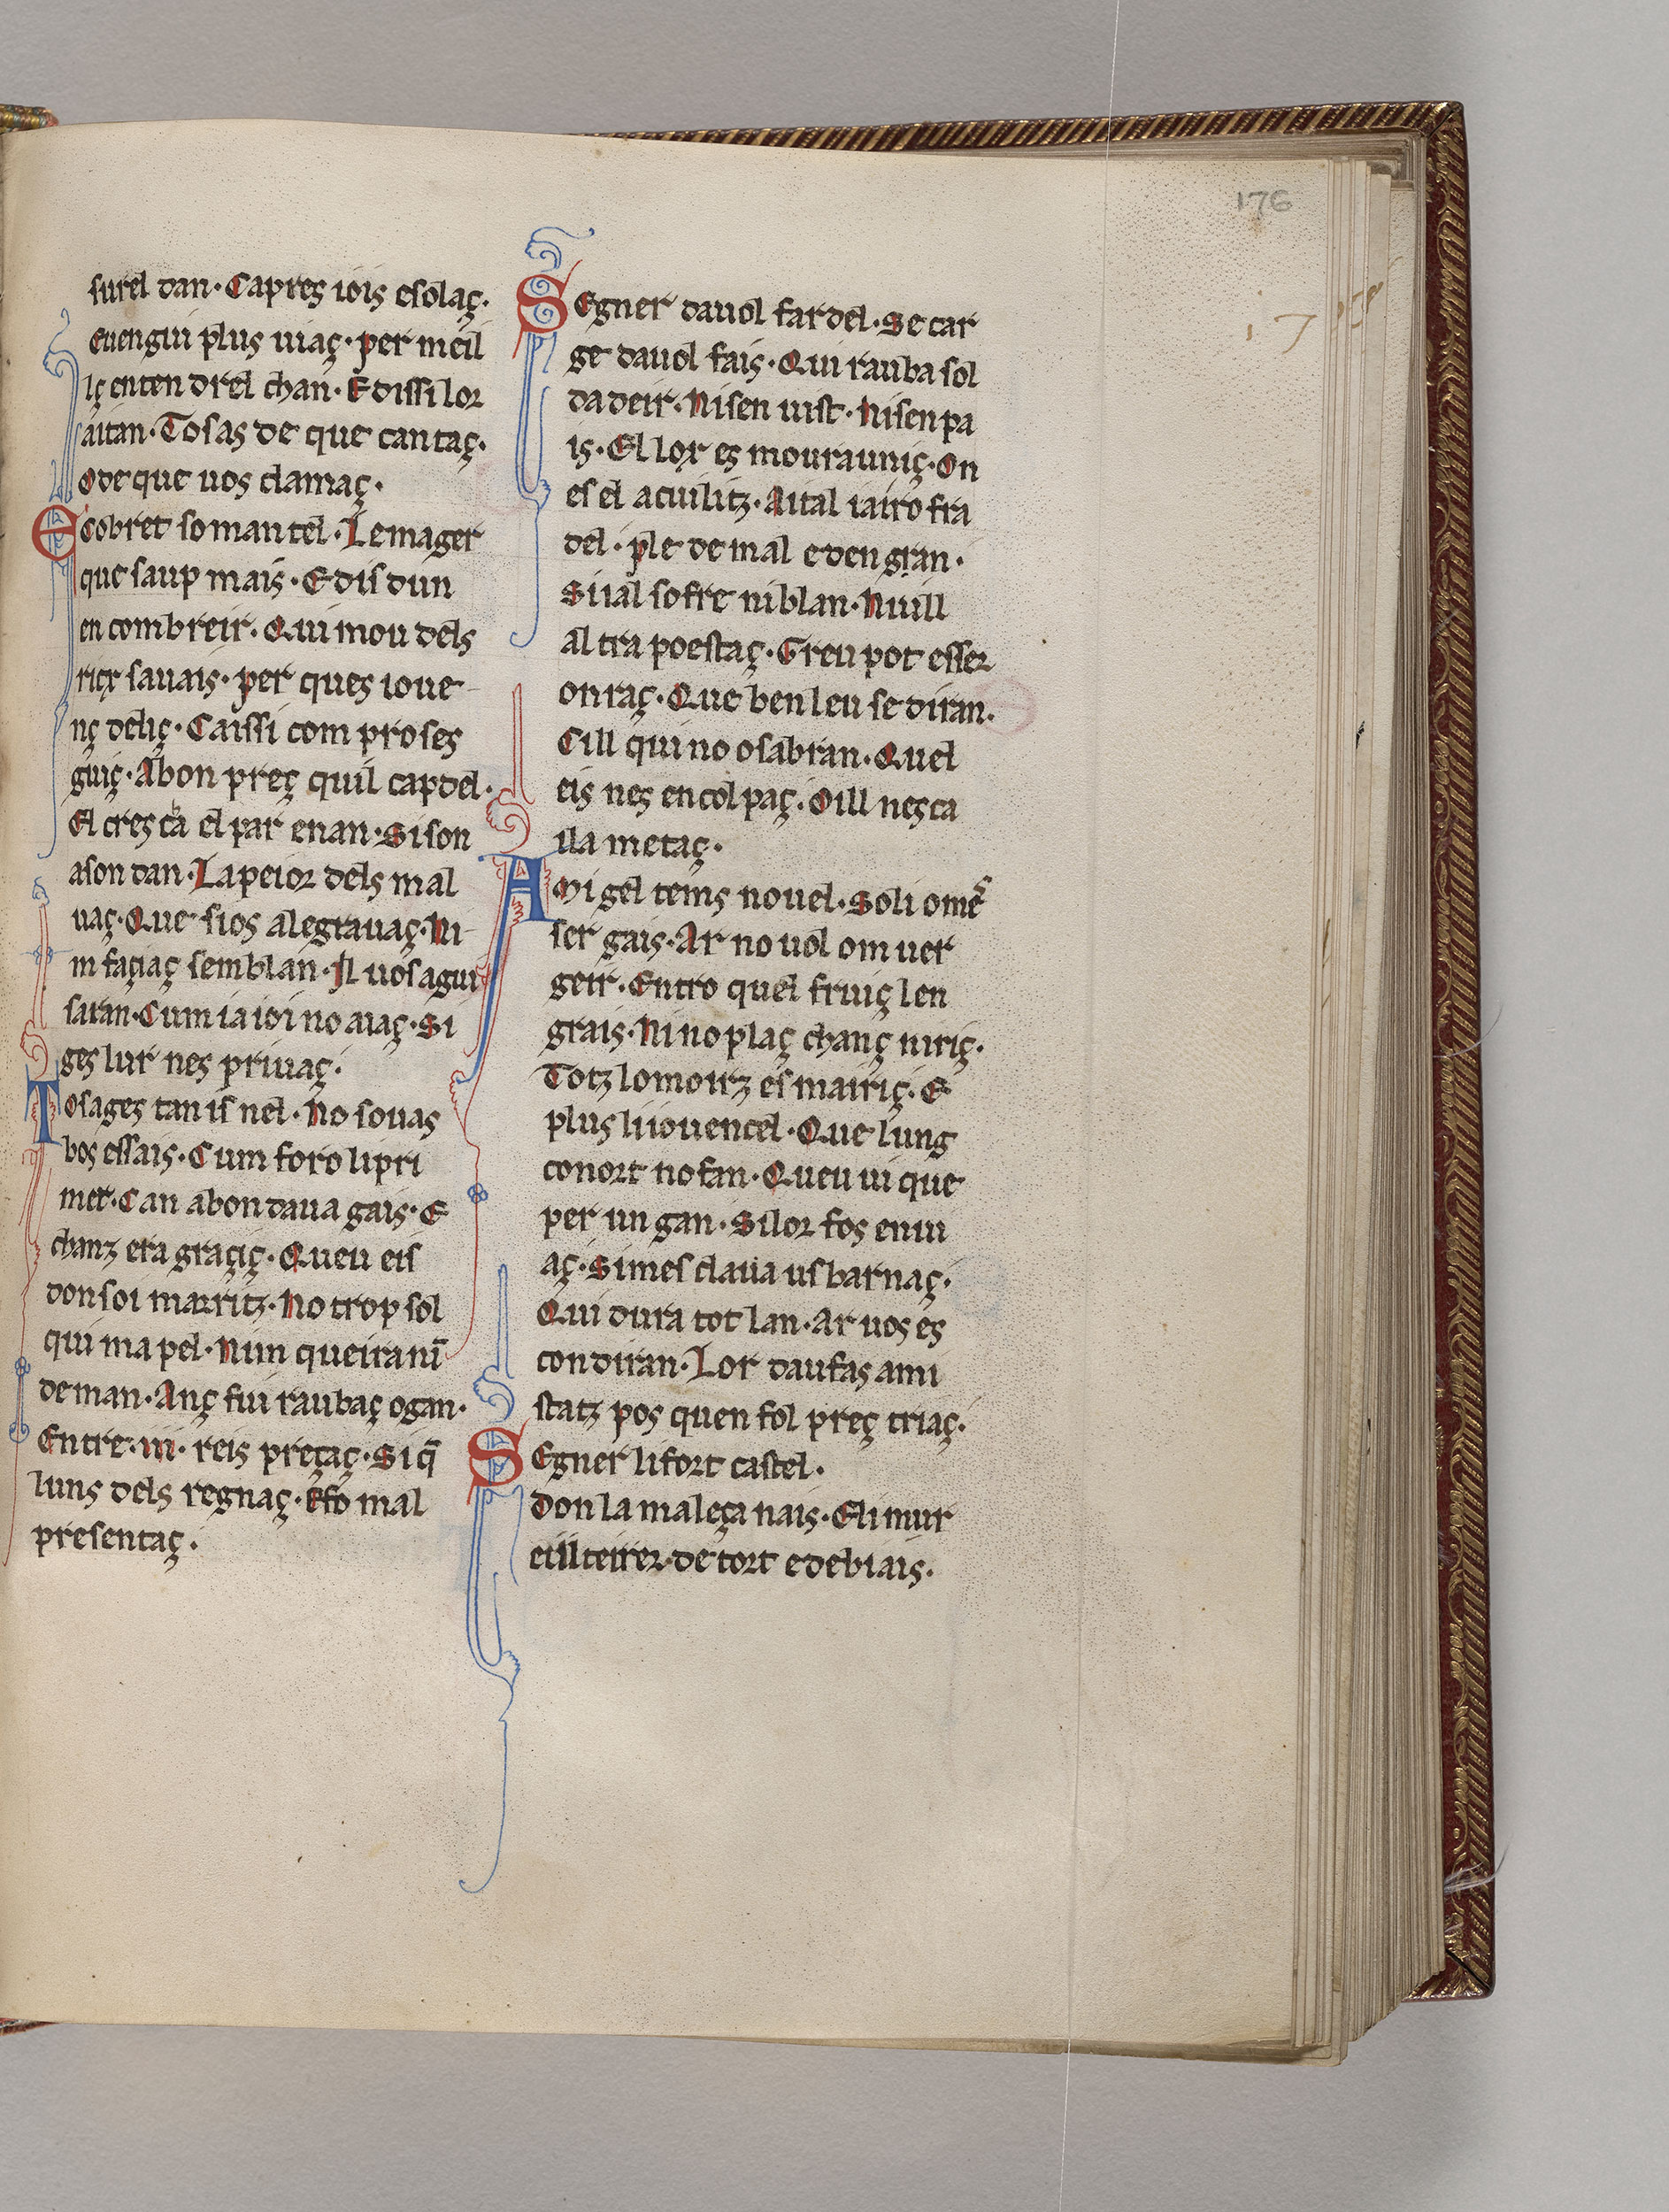 176
surel dan· Capreç iois esolaç·
euengui pluç uiaç· per meil
lç entendrel chan· Edissi lor
aitan· Tosas de que cantaç·
o de que uos clamaç·
Ecobret so mantel· Lemager
que saup mais· E dis dun
encombreir· Qui mou dels
ricx sauais· per ques ioue
nç deliç· Caissi com proses
guiç· Abon preç quil capdel·
El crescha el par enan· Si son
ason dan· La peior dels mal
uaç· Que sios alegrauaç· Ni
m façiaç semblan· Il uos agui
saran· Cum ia ioi no aiaç· Si
ges lur nes priuaç·
Tosages tan isnel· No so uas
bos essais· Cum foro li pri
mer· Can abondaua gais· E
chanz era graçiç· Queu eis
don soi marritz· No trop sol
qui mapel· Nim queira nī
deman· Anç fui raubaç ogan·
Entre· iii· reis preçaç· Si q̄
luns dels regnaç· E fo mal
presentaç·
SEgner dauol fardel· Se car
ge dauol fais· Qui rauba sol
dadeir· Ni sen uist· Ni sen pa
is· El lor es mourauniç· On
es el aculitz· Aital iairo fra
del· ple de mal e dengran·
Si ial sofre ni blan· Nuill
altra poestaç· Greu pot esser
onraç· Que ben leu se diran·
Cill qui no osabran· Quel
eis nes encolpaç· Oill nesca
ila metaç·
AMi gel tems nouel· Soli omē
ser gais· Ar no uol om uer
geir· Entro quel fruiç len
grais· Ni no plaç chanç ni riç·
Totz lo moirz es mairiç· E
plus li iouencel· Que lung
conort no fan· Queu ui que
per un gan· Si lor fos enui
aç· Simes claua us barnaç·
Qui dura tot lan· Ar uos es
condiran· Lor daufas ami
statz pos quen fol preç triaç·
SEgner li fort castel·
don la maleça nais· Eli mur
eill teirer· de tort e de biais·